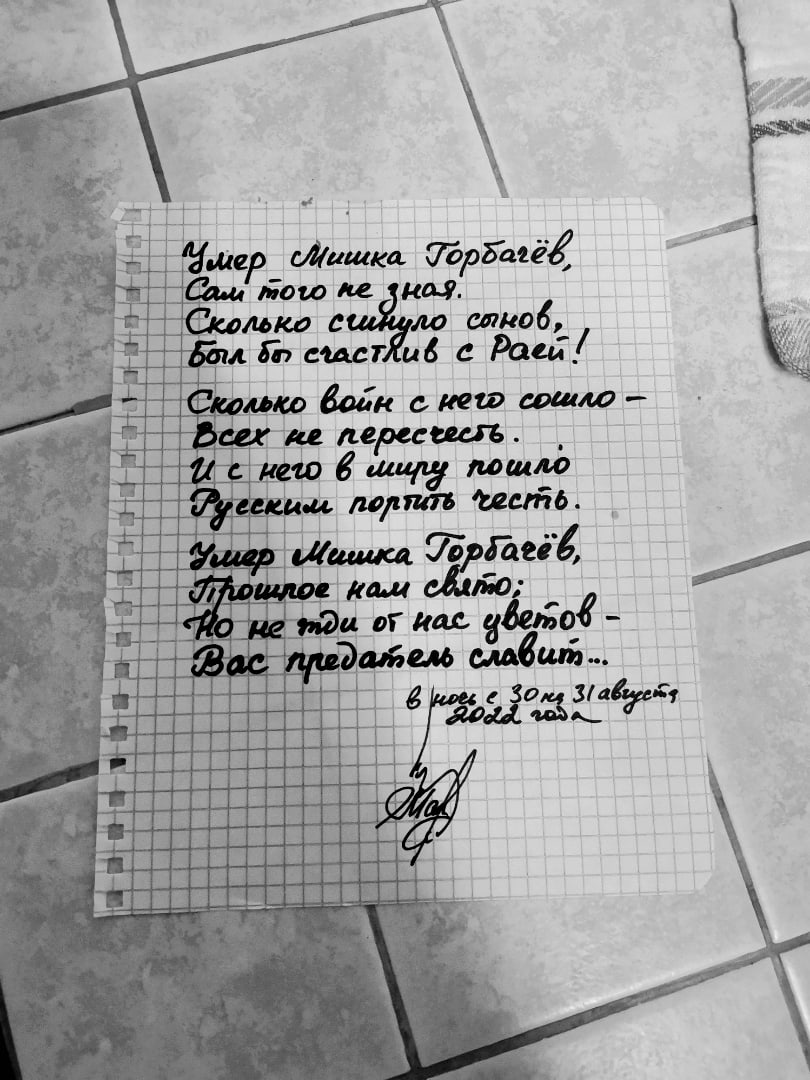 Умер Мишка Горбачёв,
Сам того не зная.
Сколько сгинуло сынов,
Был бы счастлив с Раей!
Сколько войн с него сошло –
Всех не пересчесть.
И с него в миру пошло
Русским портить честь.
Умер Мишка Горбачёв,
Прошлое нам свято;
Но не жди от нас цветов –
Вас предатель славит...
в ночь с 30 на 31 августа
2022 года